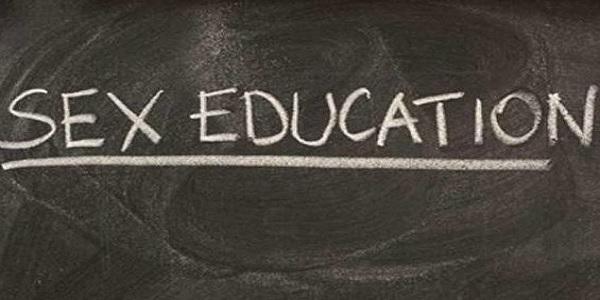 SEX EDUCATION